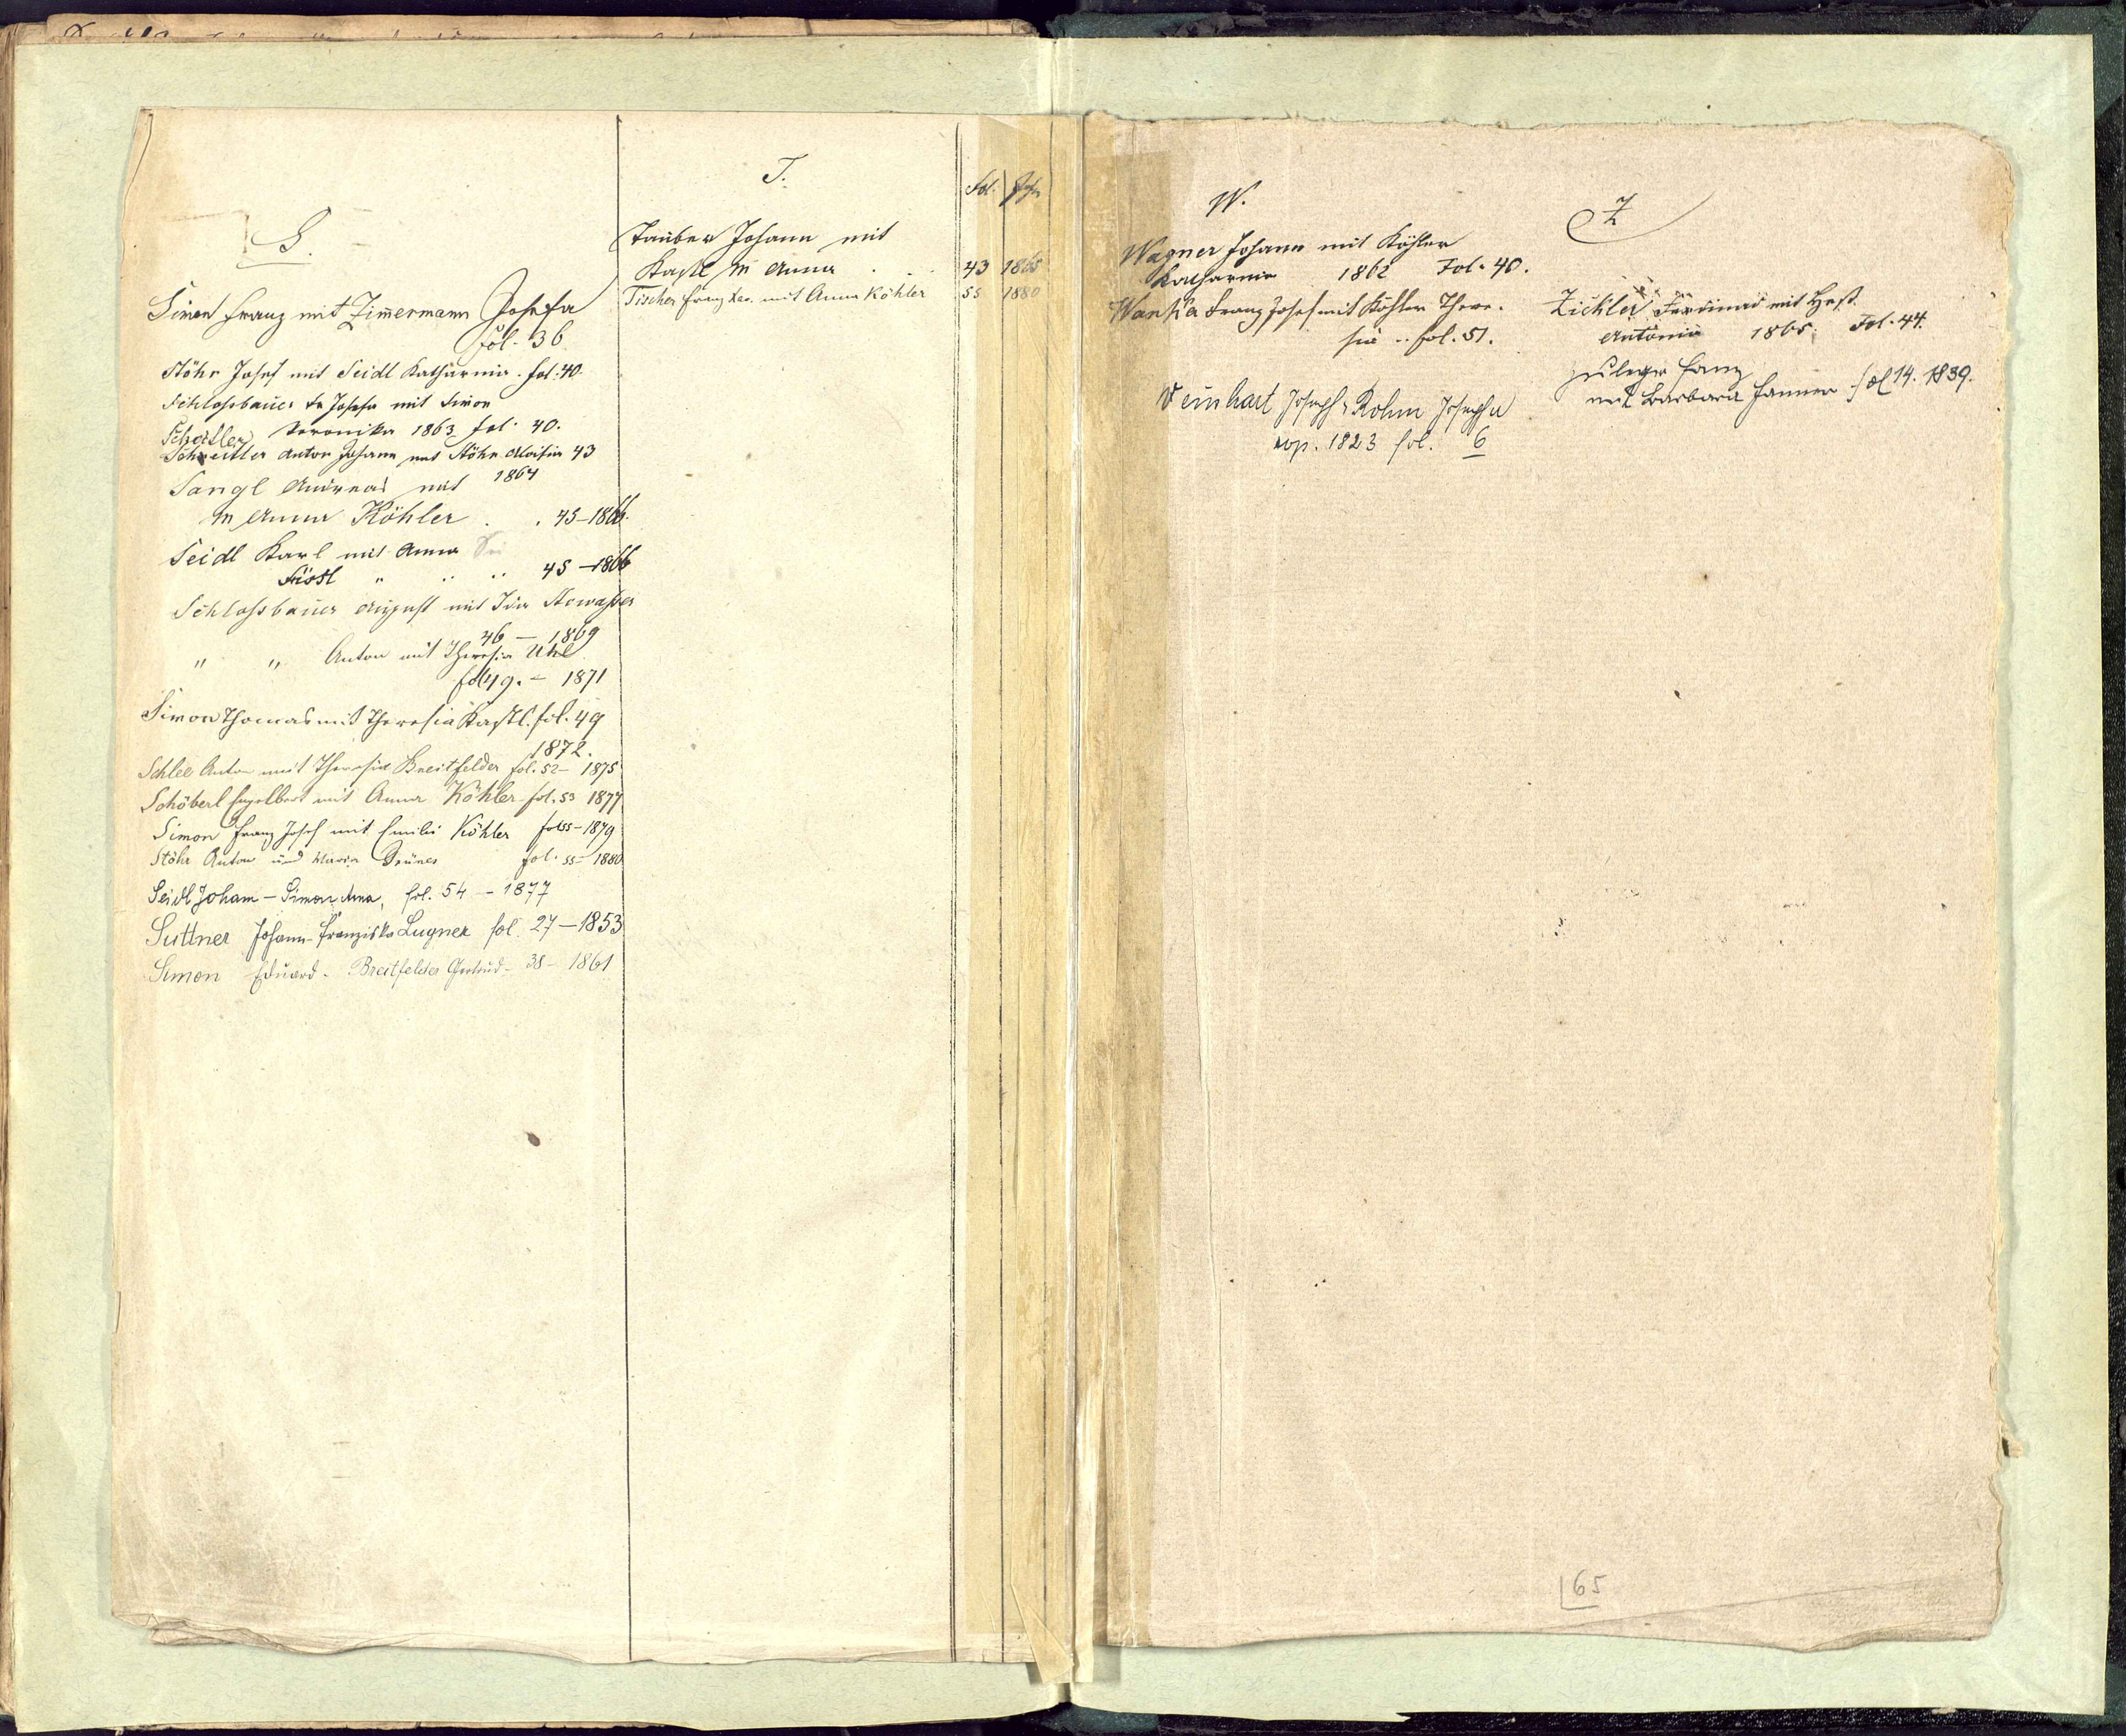 S.
Simon Franz mit Zimermann Josefa
fol. 36
Stöhr Josef mit Seidl Katharina. fol. 40.
Schlossbauer Josefa mit Simon
Schettler Veronika 1863 fol. 40.
Schreitler Anton Johann mit Stöhr Aloisia 43
1864
Sangl Andreas mit
M Anna Köhler . . 45-1866.
Seidl Karl mit Anna
Füssl " .. .. 45-1866
Schlossbauer August mit Ida Nowasser
46 - 1869
" " Anton mit Theresia Uhl
fol 49. - 1871
Simon Thomas mit Theresia Kastl. fol. 49
1872.
Schlee Anton mit Theresia Breitfelder fol. 52- 1875
Schöberl Engelbert mit Anna Köhler fol. 53 1877
Simon Franz Josef mit Emilie Köhler fol 55-1879
Stöhr Anton und Maria Grüner fol. 55- 1880
Seidl Johann - Simon Anna, fol. 54 - 1877
Suttner Johann - Franziska Lugner fol. 27-1853
Simon Eduard - Breitfelder Gertrud - 38 - 1861
T.
Fol. Jahr
Tauber Johann mit
Kastl M Anna . . . 43 1865
Tischer Franz Xav. mit Anna Köhler 55 1880
W.
Wagner Johann mit Köhler
Katharina 1862 Fol. 40.
Wanka Franz Josef mit Köhler There.
sia .. fol. 51.
Weinhart Joseph Rohm Josepha
cop. 1823 fol. 6
Z
Zickler Ferdinand mit Heß
Antonia 1865. Fol. 44.
Zuleger Franz
mit Barbara Fanner fol 14. 1839.
65